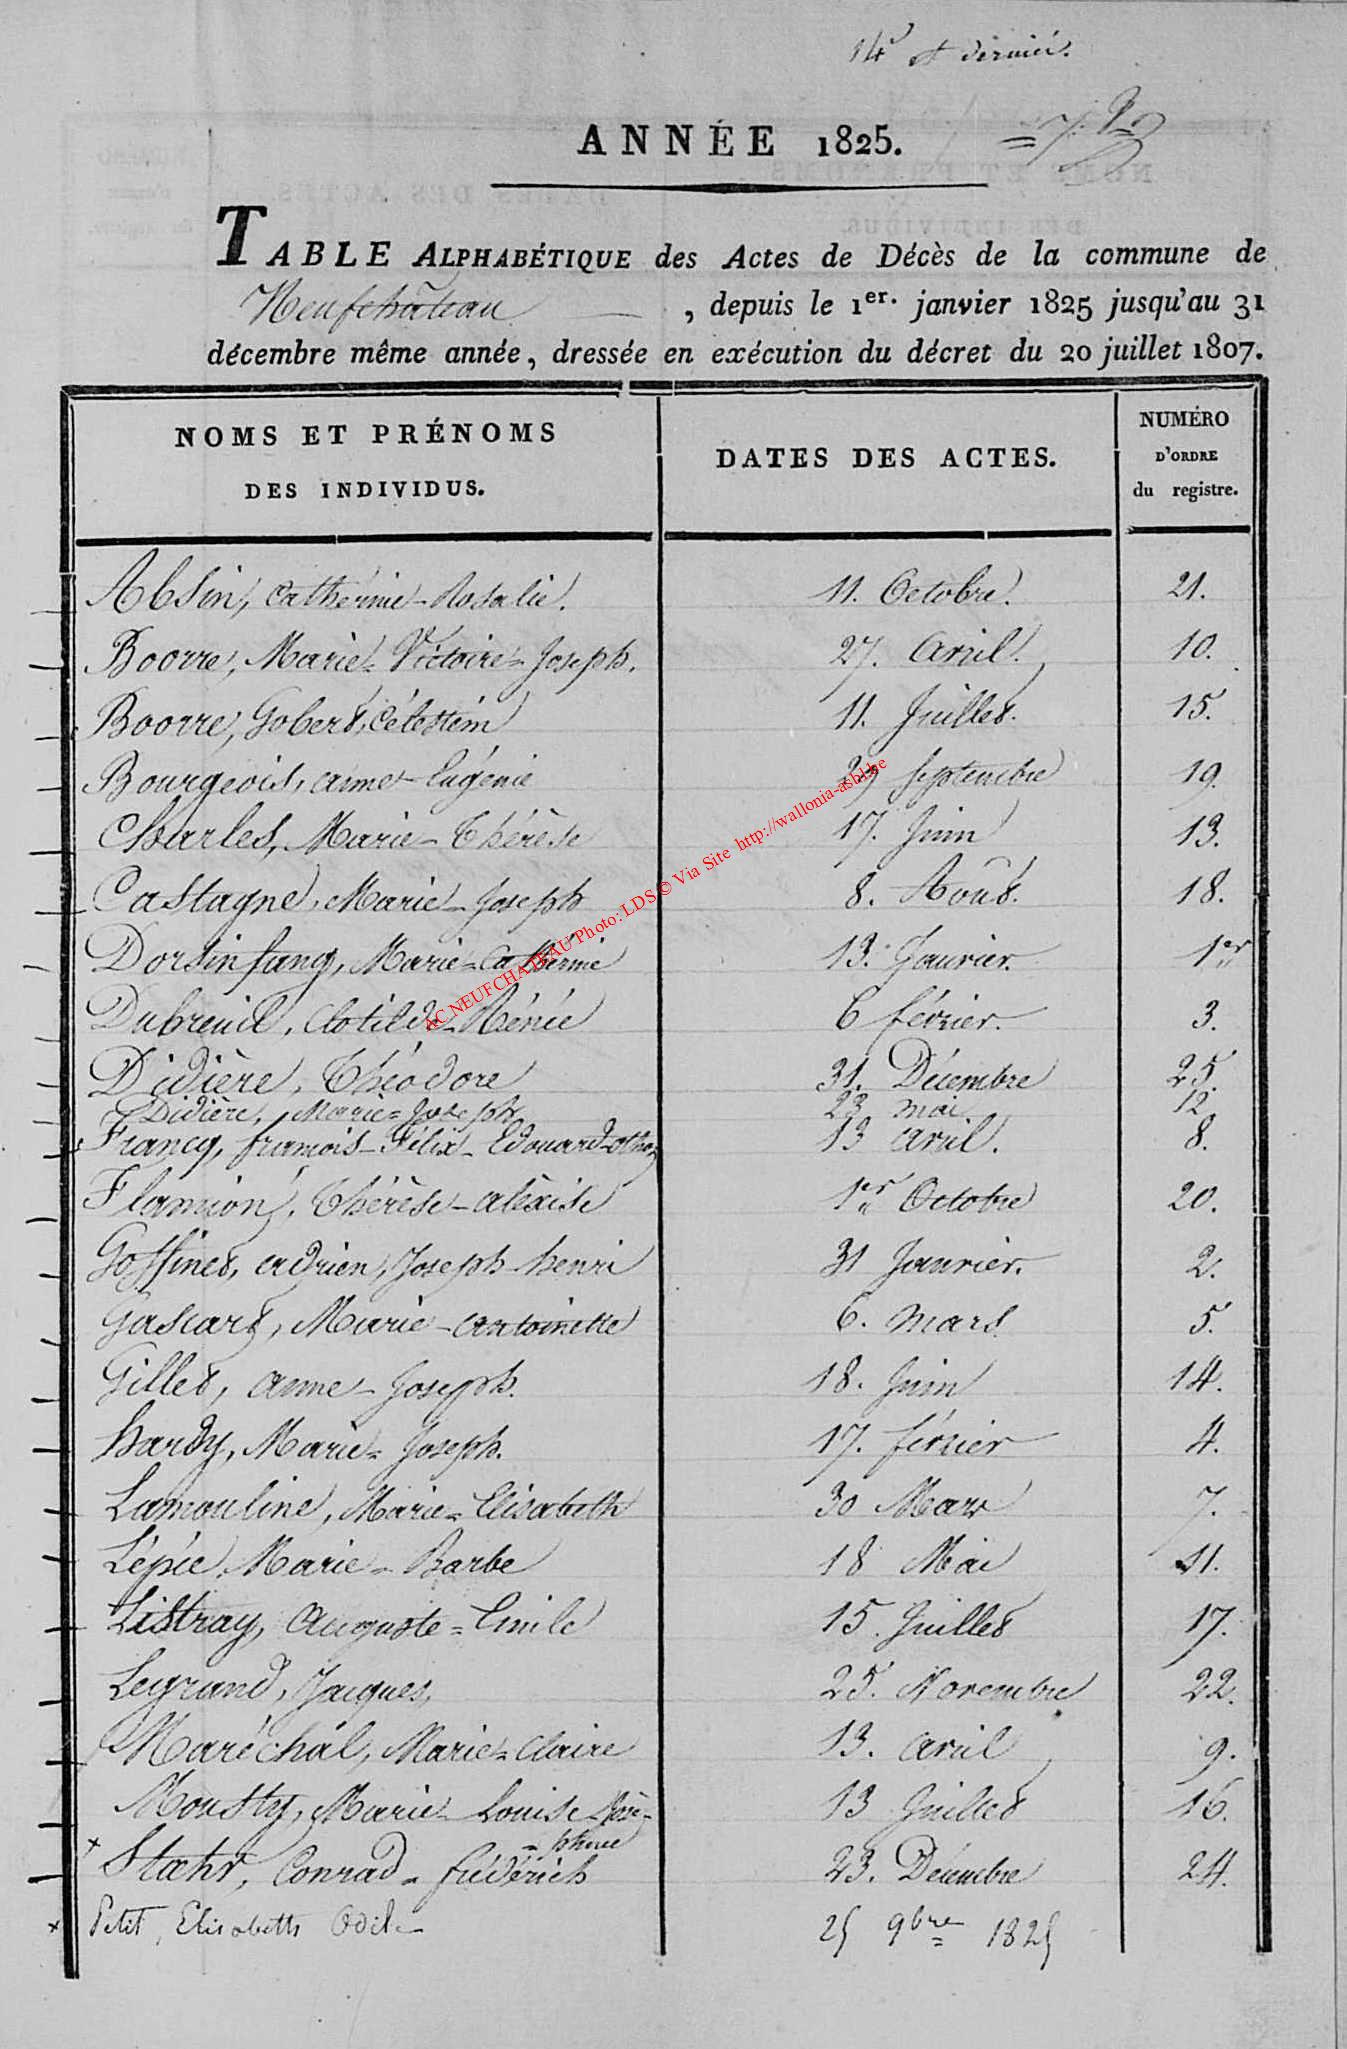 14e et dernier.
ANNÉE 1825.
TABLE ALPHABÉTIQUE des Actes de Décès de la commune de
Neufchâteau, depuis le 1er. janvier 1825 jusqu'au 31
décembre même année, dressée en exécution du décret du 20 juillet 1807.
NOMS ET PRÉNOMS DES INDIVIDUS. DATES DES ACTES. NUMÉRO D'ORDRE du registre.
Absin, Catherine-Rosalie. 11. Octobre. 21.
Boorre, Marie-Victoire-Joseph. 27. Avril. 10.
Boorre, Gobert, Célestin 11. Juillet. 15.
Bourgeois, Anne-Eugénie 29 Septembre 19.
Charles, Marie-Thérèse 17. Juin 13.
Castagne, Marie-Joseph 8. Août. 18.
Dorsinfang, Marie-Catherine 13. Janvier. 1er
Dubreuil, Clotilde-Rénée 6 février. 3.
Didière, Théodore 31. Décembre 25.
Didière, Marie=Joseph 23 mai 12
Francq, françois-Félix-Edouard-Othon 13 avril. 8.
Flamion, Thérèse-Alexise 1er Octobre 20.
Goffinet, Adrien, Joseph henri 31 Janvier. 2.
Gascard, Marie-Antoinette 6. Mars 5.
Gillet, Anne-Joseph. 18. Juin 14.
Hardy, Marie=Joseph. 17. février 4.
Lamouline, Marie=Elisabeth 30 Mars 7.
Lépée, Marie-Barbe 18 Mai 11.
Listray, Auguste=Emile 15. Juillet 17.
Legrand, Jacques, 25. Novembre 22.
Maréchal, Marie=Claire 13. avril 9.
Mousty, Marie-Louise José-
=phine 13 Juillet 16.
Stæhr, Conrad-Frédérich 23. Décembre 24.
Petit, Elisabeth Odile 25 9bre 1825
AC NEUFCHATEAU Photo: LDS © Via Site http://wallonia-asbl.be